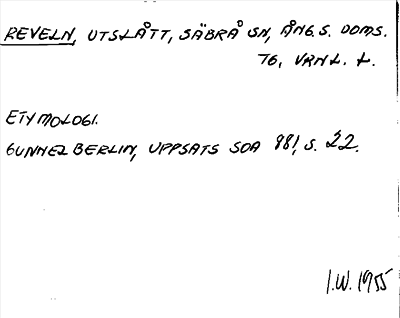 REVELN, UTSLÅTT, SÄBRÅ SN, ÅNG. S. DOMS.
76, VRNL. L.
ETYMOLOGI.
GUNNEL BERLIN, UPPSATS SOA 981, S. 22.
I.W. 1955